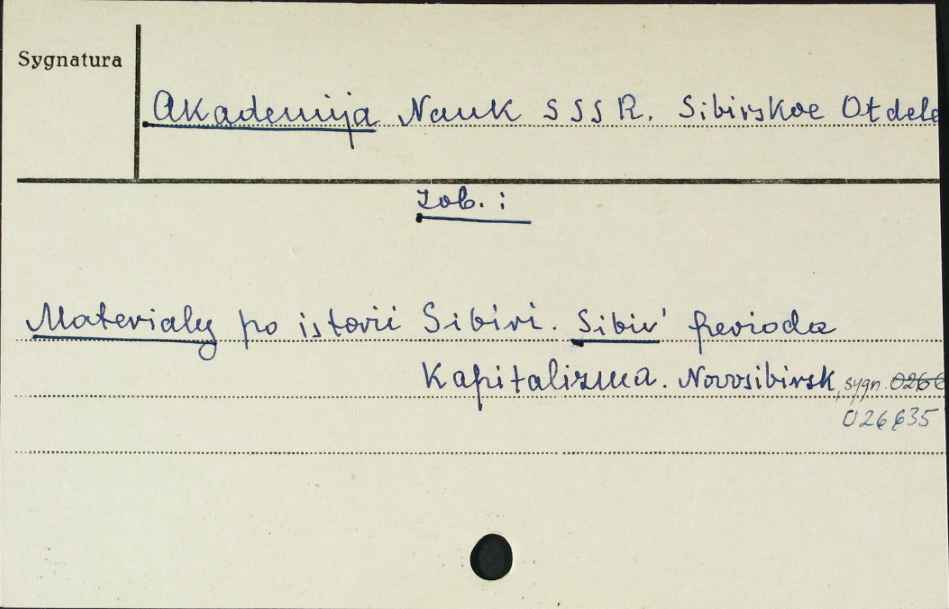 Sygnatura
Akademija Nauk SSSR. Sibirskoe Otdele
Zob. :
Materialy po istorii Sibiri. Sibir' perioda
Kapitalizma. Novosibirsk, sygn.
026635